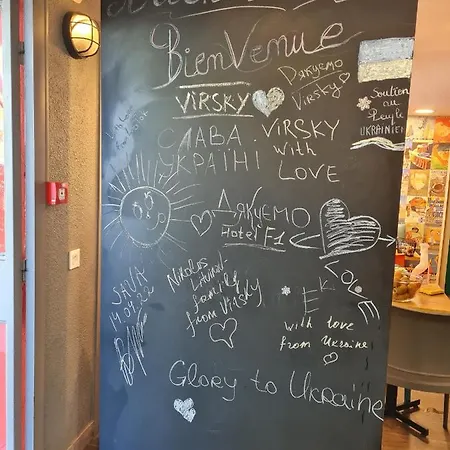 BienVenue
VIRSKY
Дякуемо
Virsky
Soutien
au
Peuple
UKRAINIEN
СЛАВА
УКРАЇНІ
VIRSKY
with
LOVE
Дякуемо
Hotel F1
SAVA
14.04.22
Nikolas
family
from Virsky
LOVE
with love
from Ukraine
Glory to Ukraine